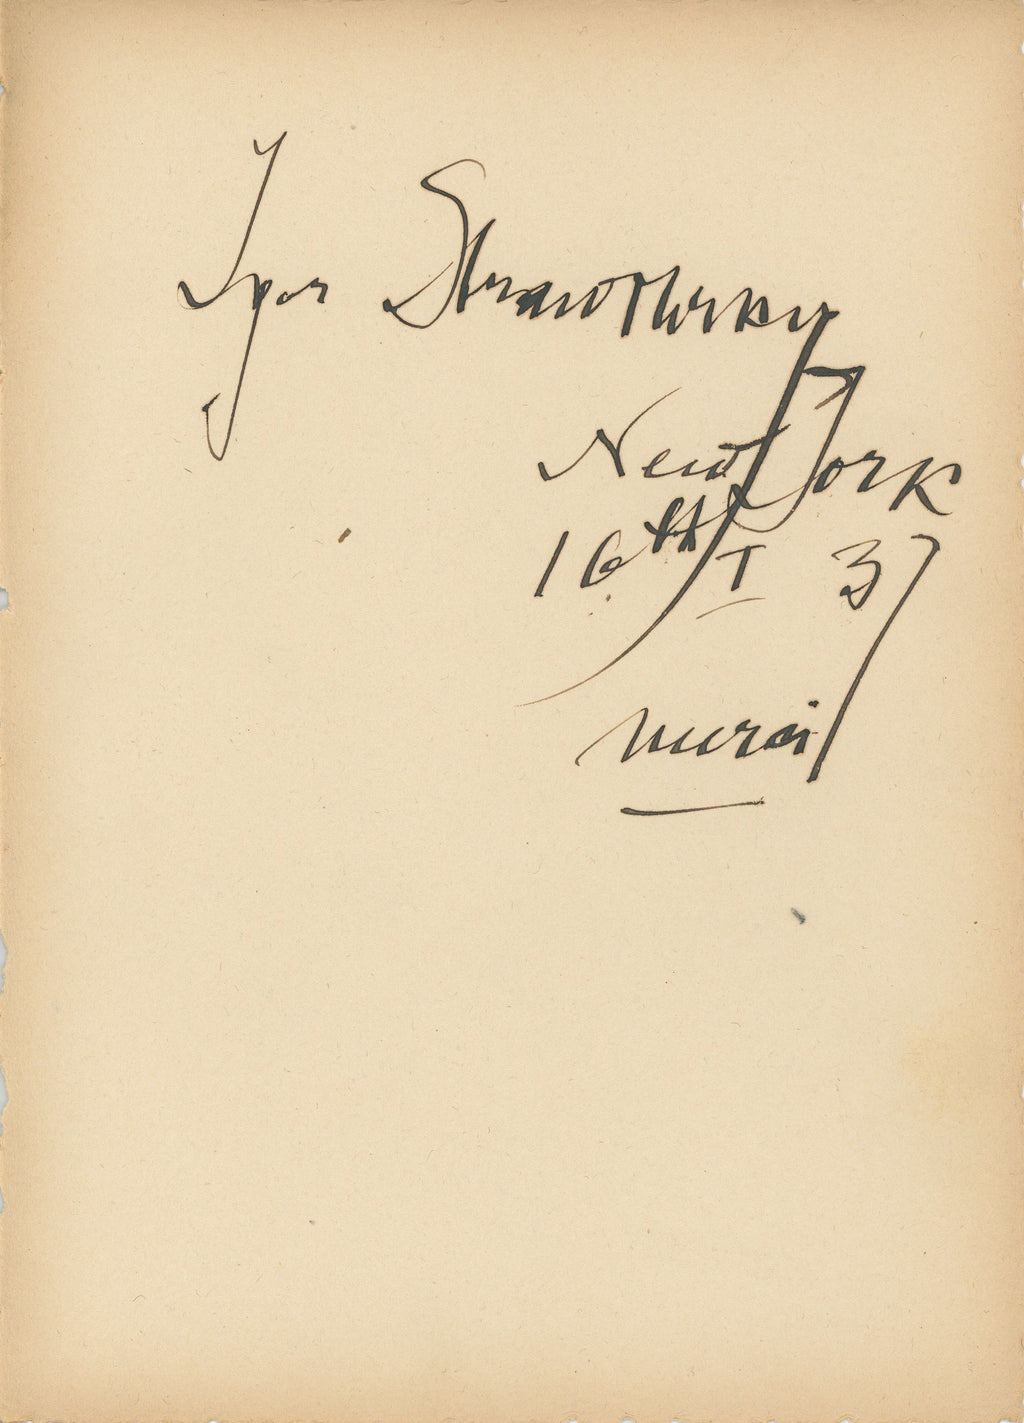 Igor Strawinsky
New York
16th I 37